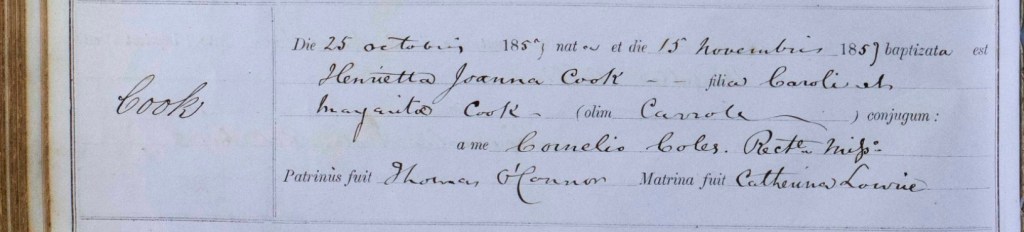 Die 25 octobris 1857 nata et die 15 Novembris 1857 baptizata est
Cook
Henrietta Joanna Cook - - filia Caroli et
Margarita Cook - (olim Carrola ) conjugum:
a me Cornelio Coles. Recte Misso
Patrinus fuit Thomas O'Connor Matrina fuit Catherina Lowrie